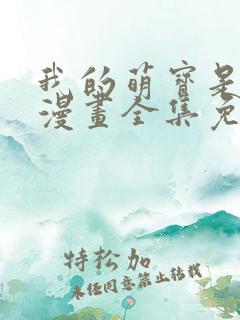 我的萌宝是
漫畫全集免
特松加
未经同意禁止转载